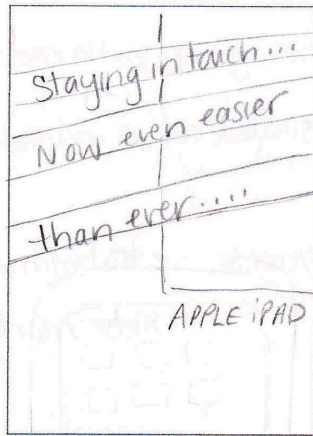 Staying in touch...
Now even easier
than ever....
APPLE iPAD